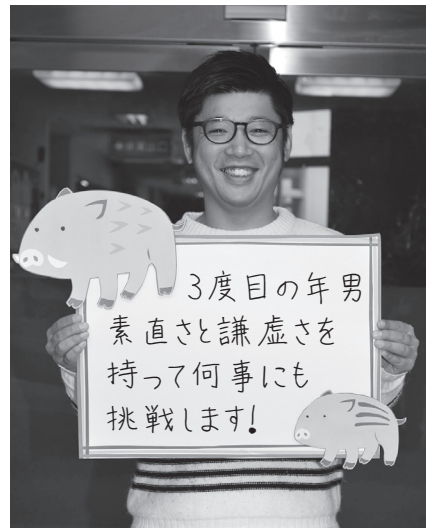 3度目の年男
素直さと謙虚さを
持って何事にも
挑戦します!